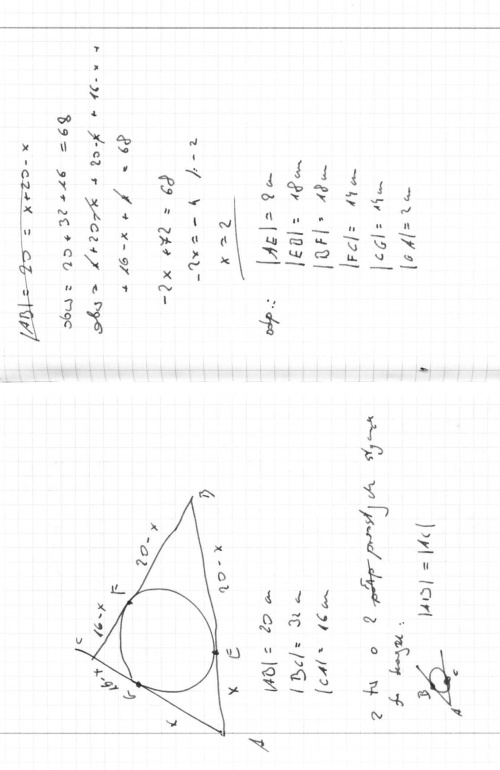 C
16-x
16-x
F
20-x
G
x
B
A
x
E
20-x
|AB| = 20 cm
|BC| = 32 cm
|CA| = 16 cm
z tw o 2 prostych stycznych
do okręgu:
B
A
C
|AB| = |AC|
|AB| = 20 = x+20-x
obw = 20+32+16 = 68
obw = x+20-x+20-x+16-x+
+16-x+x = 68
-2x+72 = 68
-2x = -4 /:-2
x = 2
odp.:
|AE| = 2 cm
|EB| = 18 cm
|BF| = 18 cm
|FC| = 14 cm
|CG| = 14 cm
|GA| = 2 cm